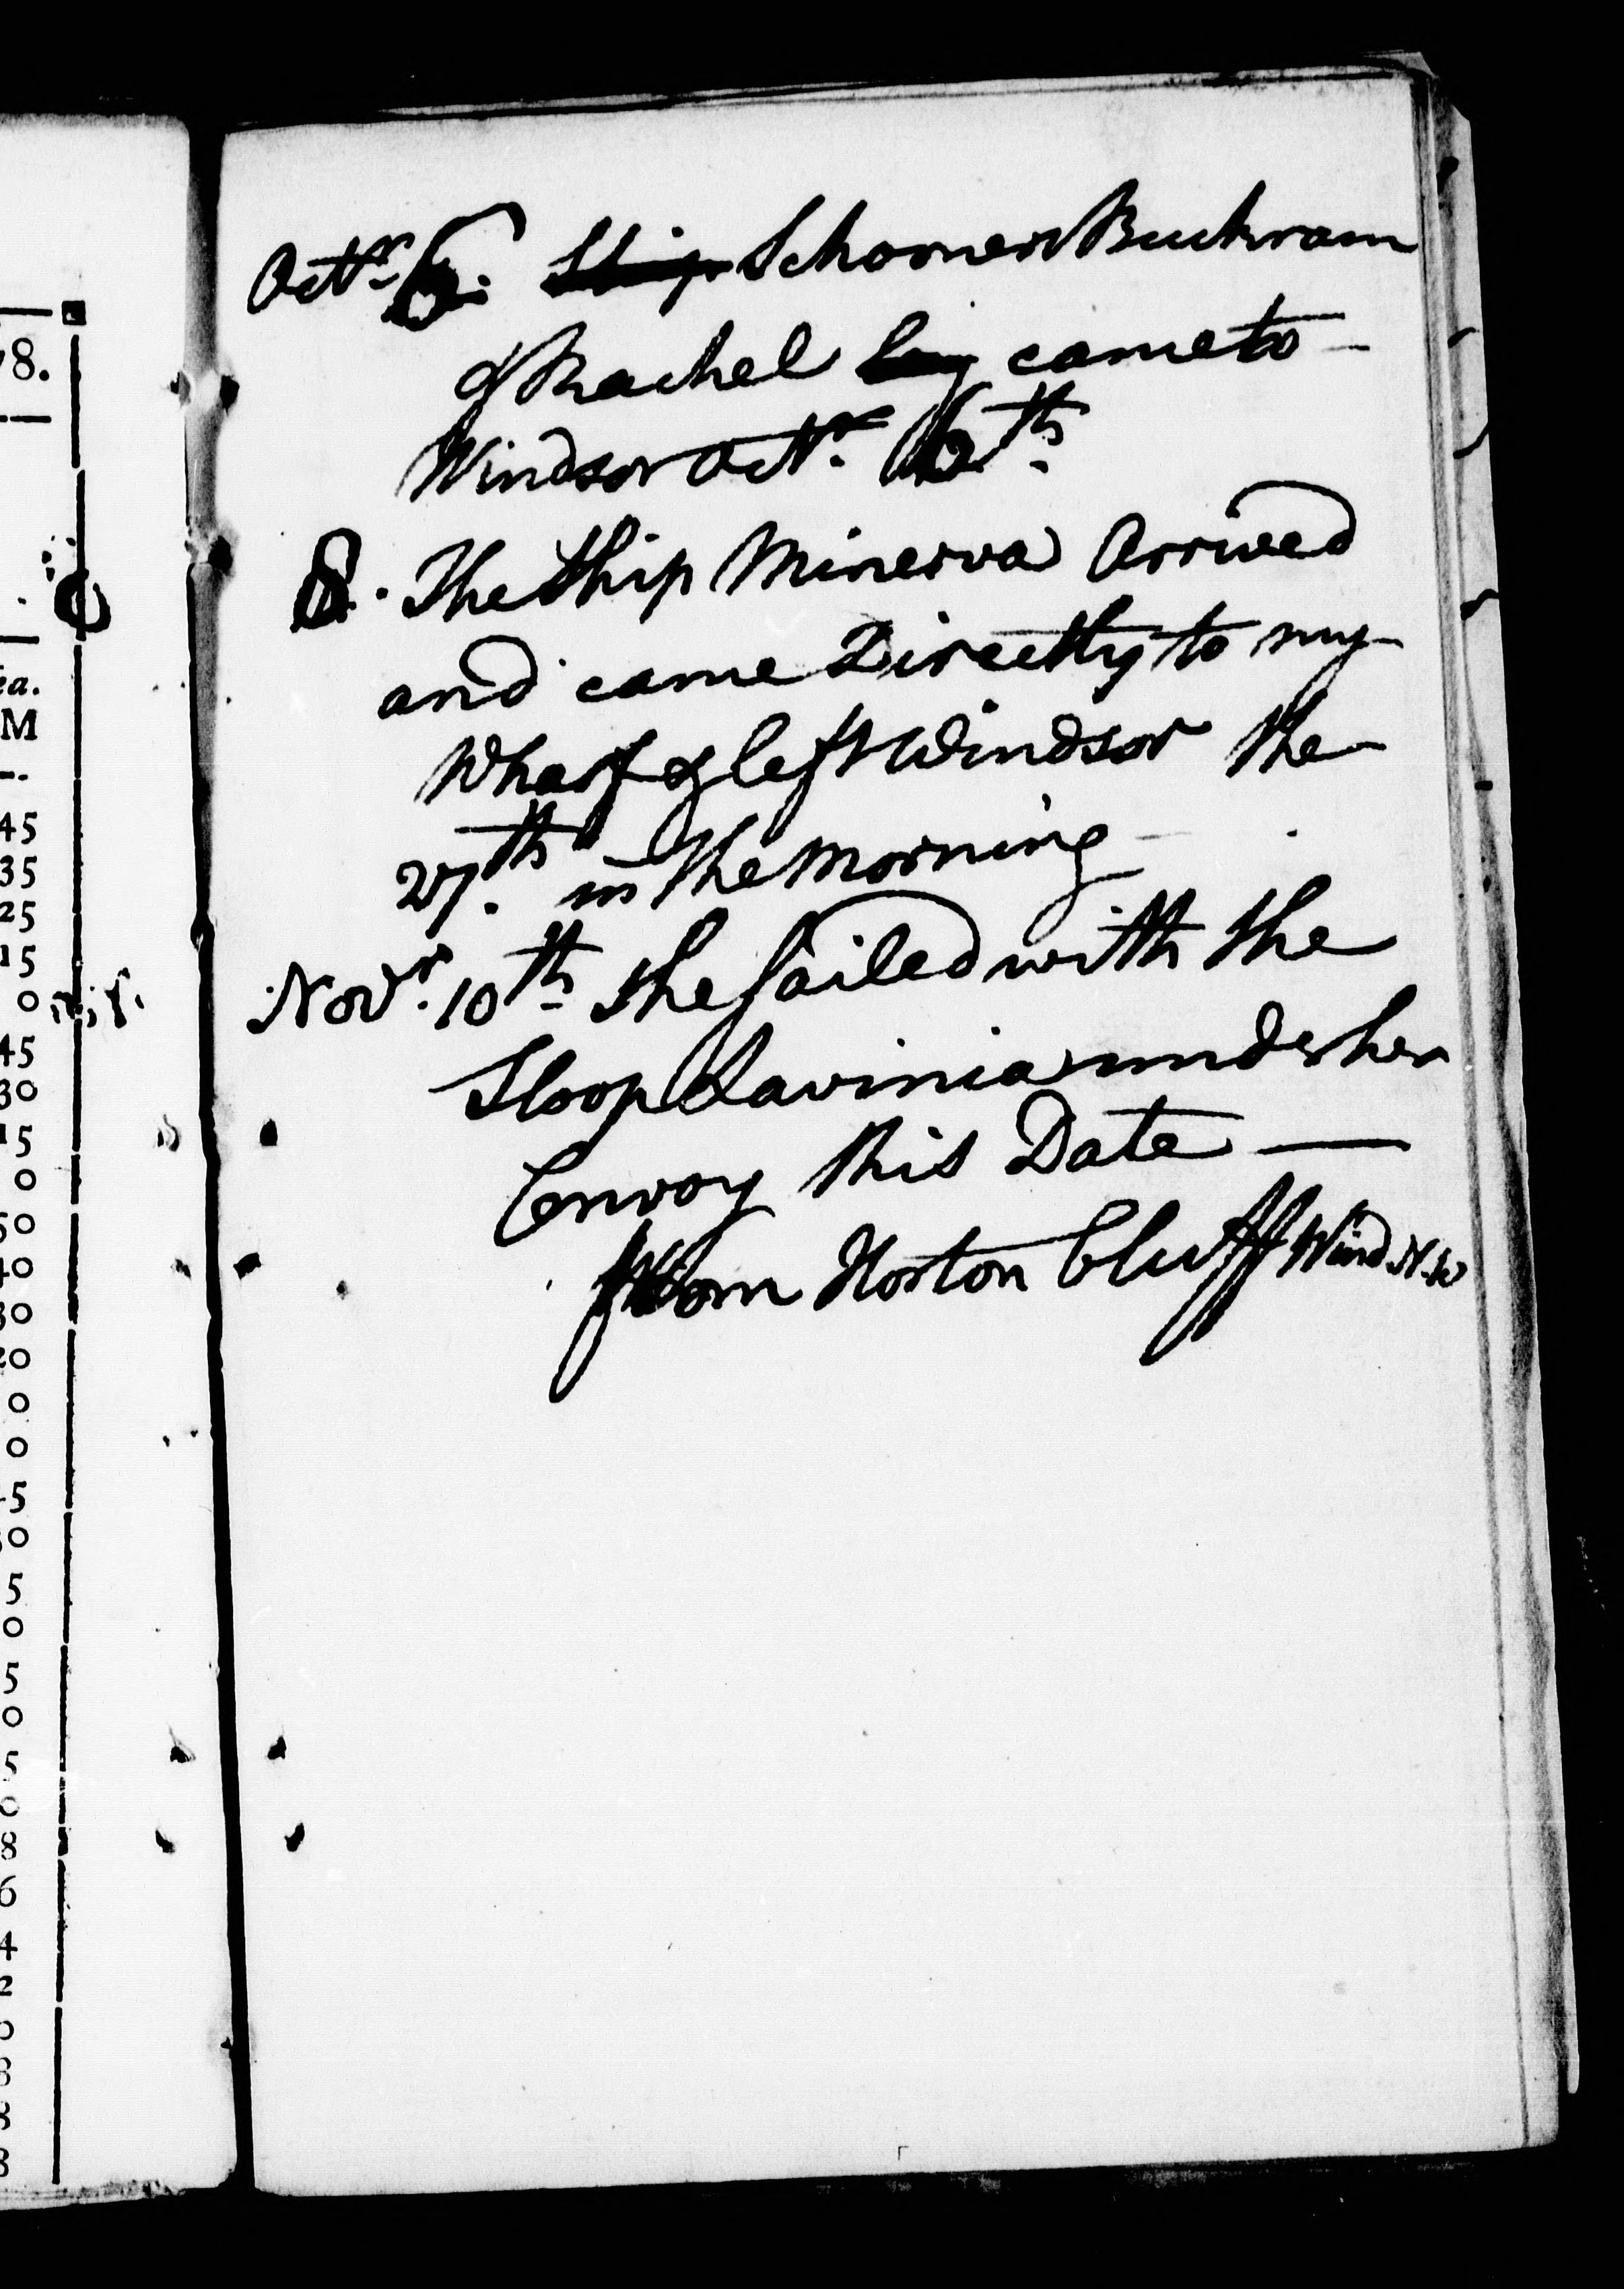 8.
ea.
M
45
35
25
15
0
45
30
15
0
50
40
30
20
0
0
45
30
5
0
5
0
5
0
8
6
4
2
Octr. 6. Ship Schooner Buckram
& Rachel Lay came to
Windsor Octr. 6th.
8. The Ship Minerva Arrived
and came Directly to my
Wharf & left Windsor the
27th. in the Morning
Novr. 10th She Sailed with the
Sloop Lavinia under her
Convoy this Date
from Horton Bluff Wind N.W